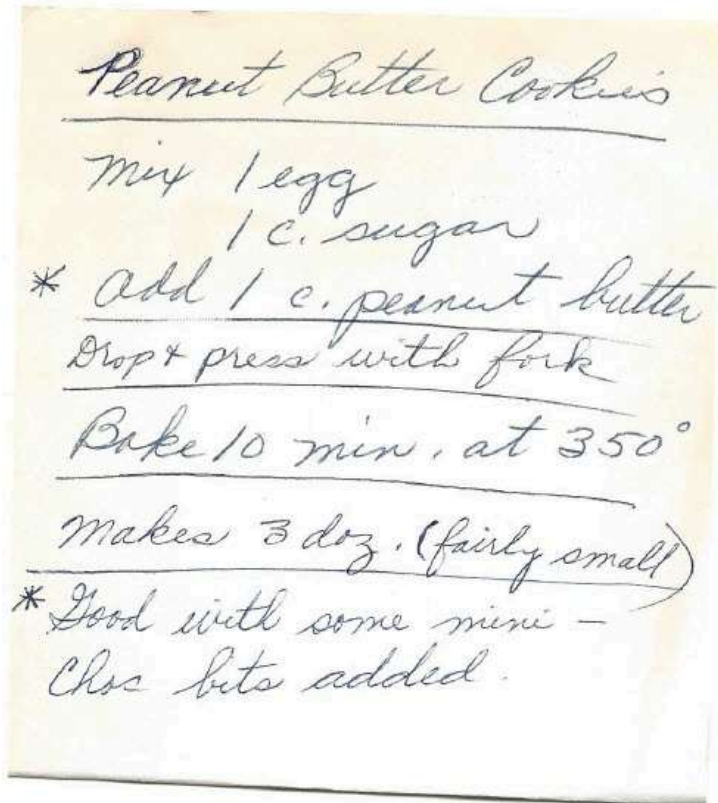 Peanut Butter Cookies
Mix 1 egg
1 c. sugar
* add 1 c. peanut butter
Drop & press with fork
Bake 10 min. at 350°
Makes 3 doz. (fairly small)
* Good with some mini -
Choc bits added.